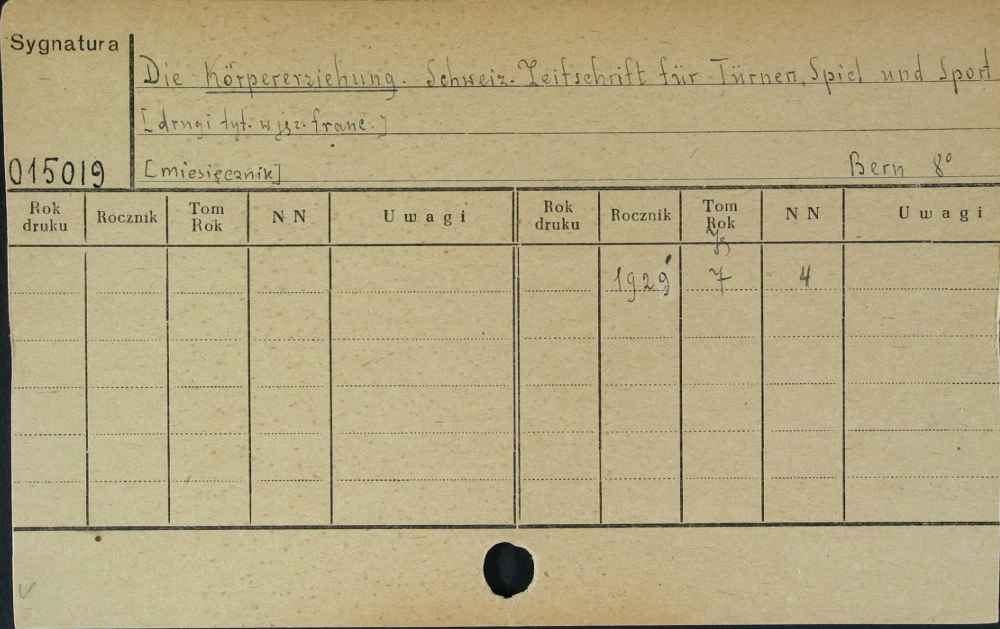 Sygnatura
Die Körpererziehung. Schweiz. Zeitschrift für Türnen, Spiel und Sport
[drugi tyt. w jęz. franc.]
015019
[miesięcznik]
Bern 8°
Rok druku Rocznik Tom Rok N N Uwagi Rok druku Rocznik Tom Rok N N Uwagi
Jg
1929 7 4